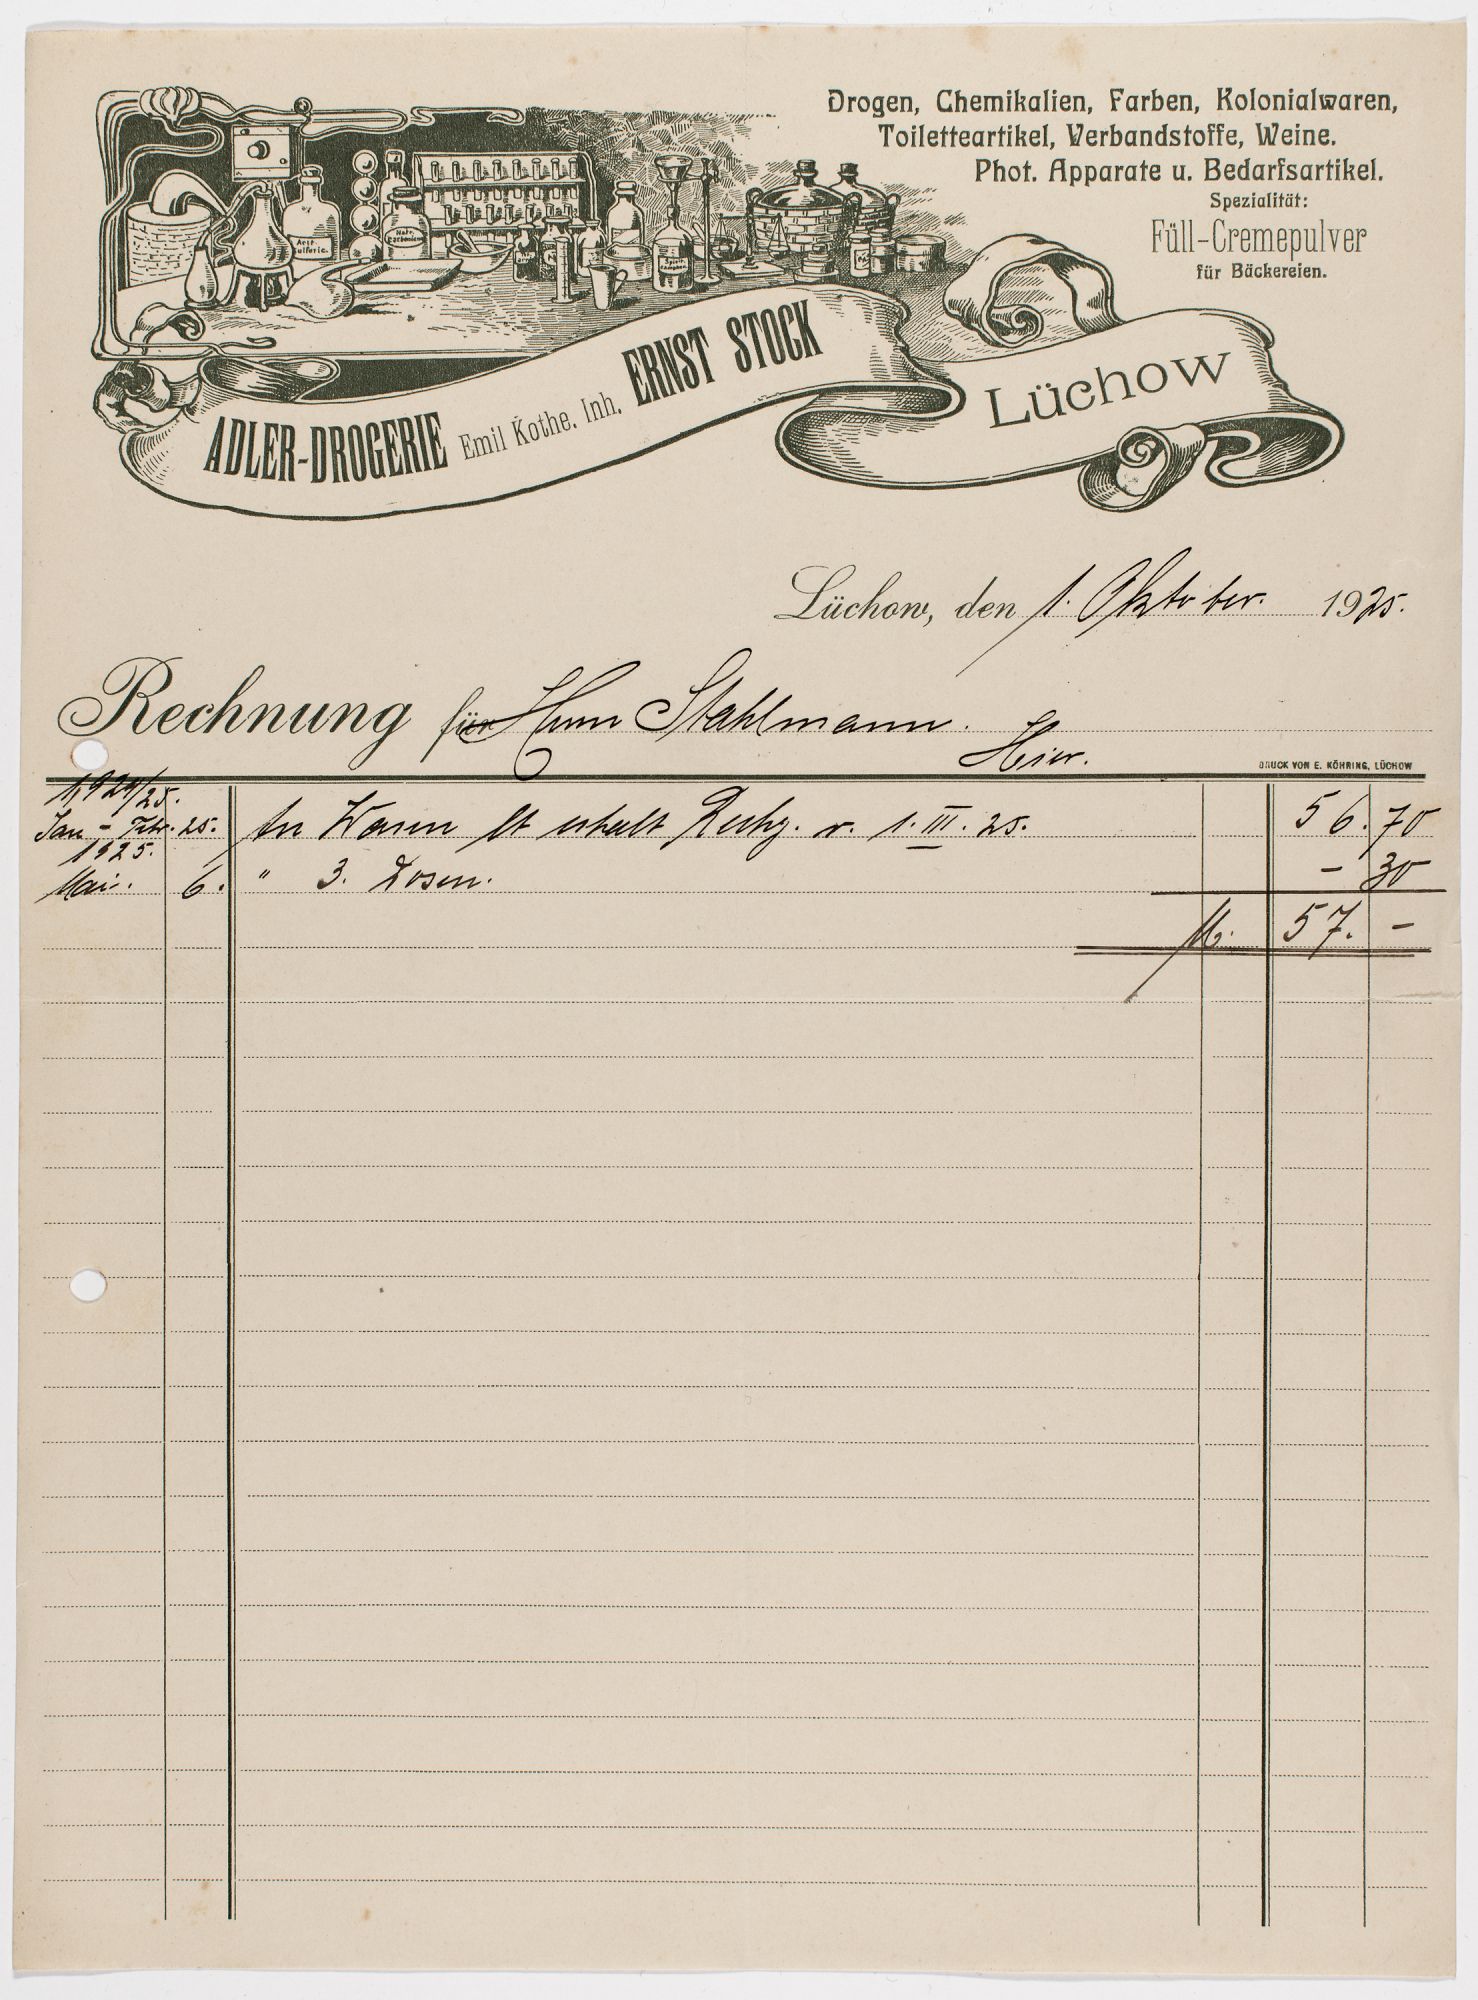 Drogen, Chemikalien, Farben, Kolonialwaren,
Toiletteartikel, Verbandstoffe, Weine.
Phot. Apparate u. Bedarfsartikel.
Spezialität:
Füll-Cremepulver
für Bäckereien.
ADLER-DROGERIE Emil Kothe. Inh. ERNST STOCK
Lüchow
Lüchow, den 1. Oktober. 1925.
Rechnung für Herrn Stahlmann.
Hier.
DRUCK VON E. KÖHRING, LÜCHOW
1924/25.
Jan - Febr. 25. An Waren lt erhalt Rechg. v. 1. III. 25. 56.70
1925.
Mai. 6. " 3. Dosen. - 30
M. 57. -